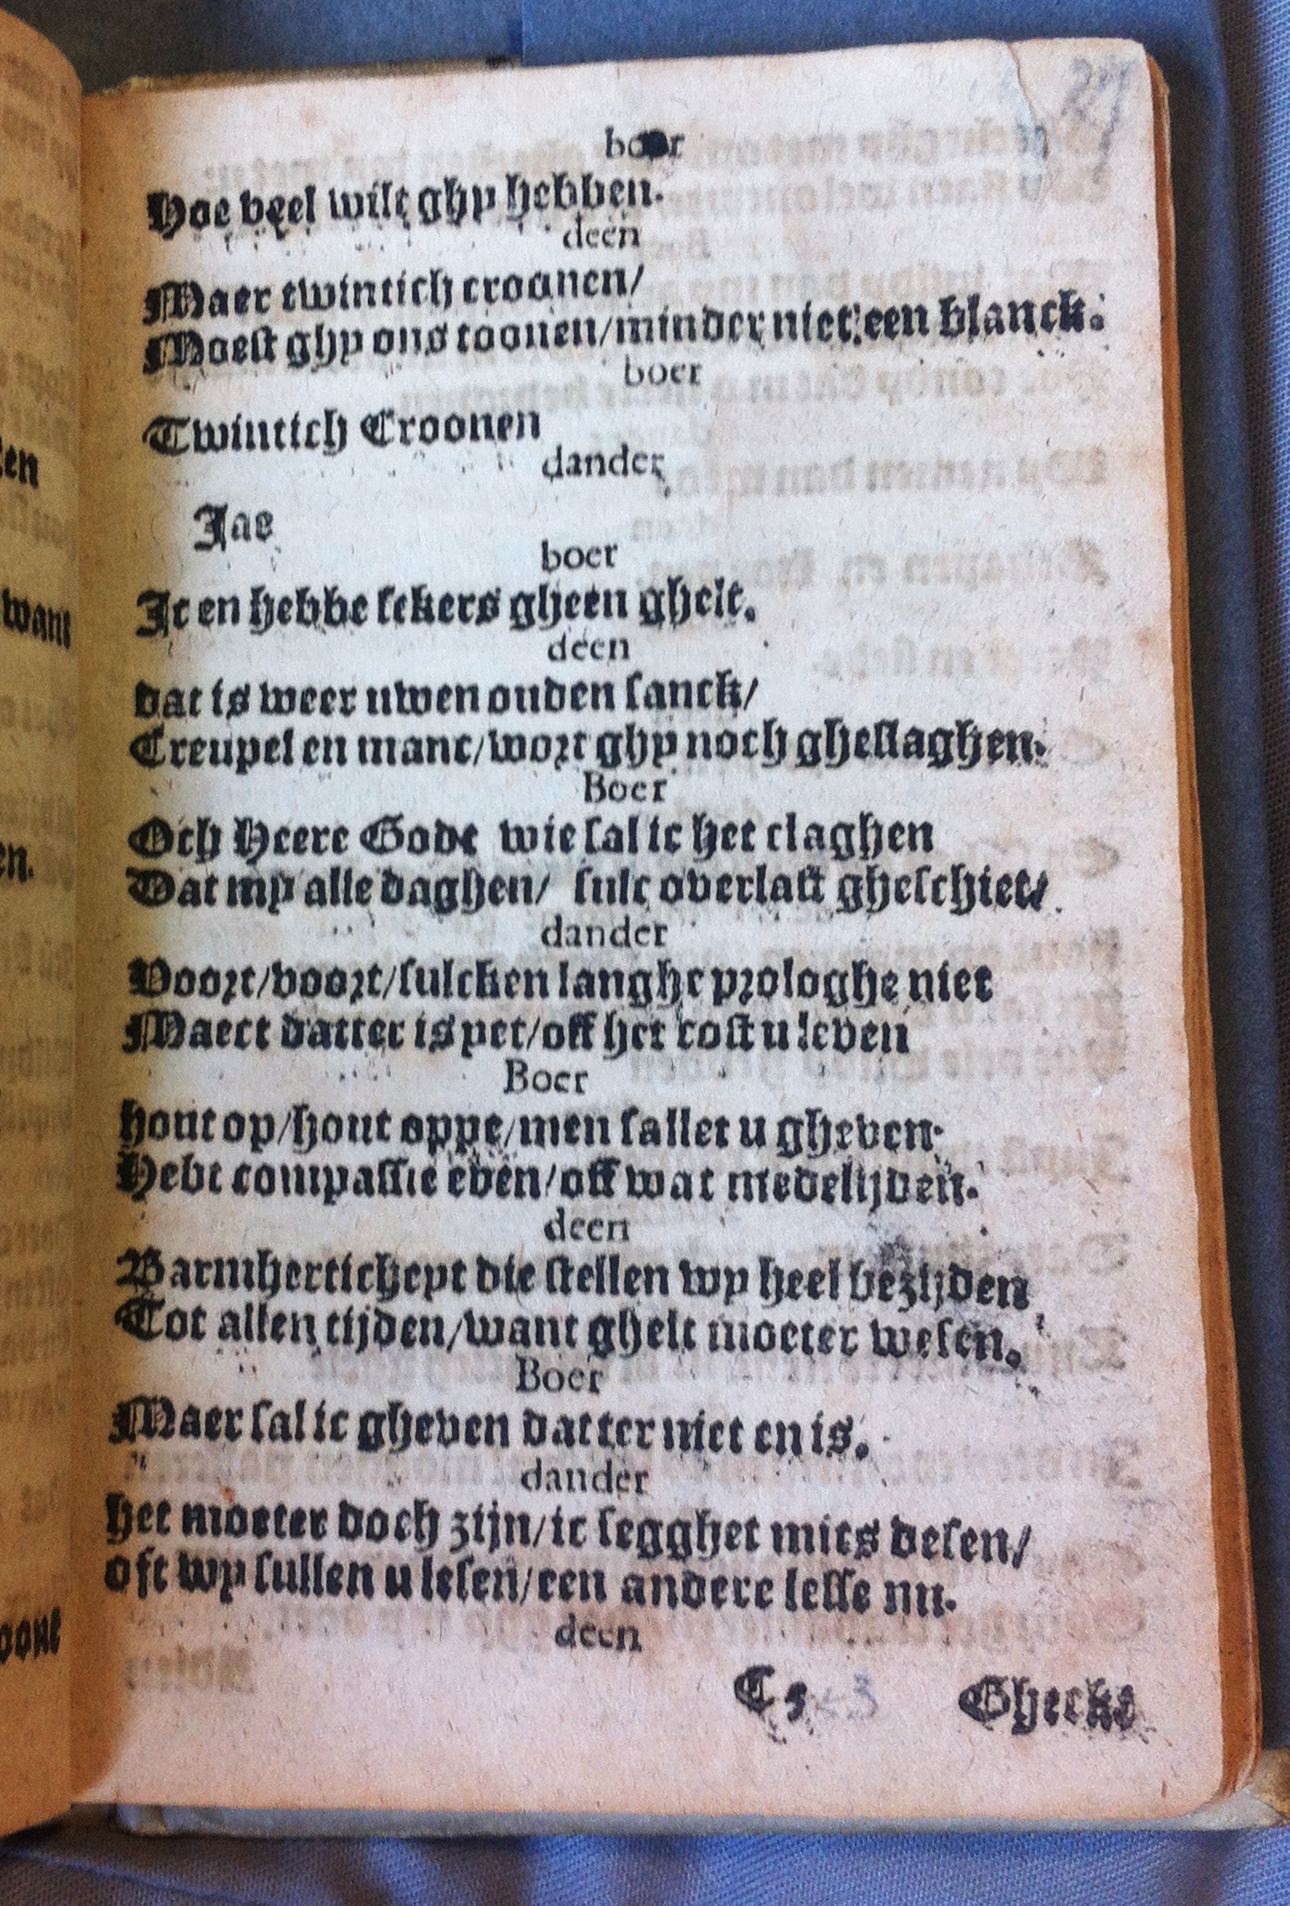 27
boer
Hoe veel wilt ghy hebben.
deen
Maer twintich croonen/
Moest ghy ons toonen/minder niet een blanck.
boer
Twintich Croonen
dander
Jae
boer
Ic en hebbe sekers gheen ghelt.
deen
dat is weer uwen ouden sanck/
Creupel en manc/wort ghy noch gheslaghen.
Boer
Och Heere Godt wie sal ic het claghen
Dat my alle daghen/ sulc overlast gheschiet/
dander
Voort/voort/sulcken langhe prologhe niet
Maect datter is yet/oft het cost u leven
Boer
hout op/hout oppe/men sallet u gheven.
Hebt compassie even/oft wat medelijden.
deen
Barmhertichept die stellen wy heel bezijden
Tot allen tijden/want ghelt moeter wesen.
Boer
Maer sal ic gheven datter niet en is.
dander
het moeter doch zijn/ic segghet mits desen/
oft wy sullen u lesen/een andere lesse nu.
deen
C 5 Gheckt
en
want
en.
oont